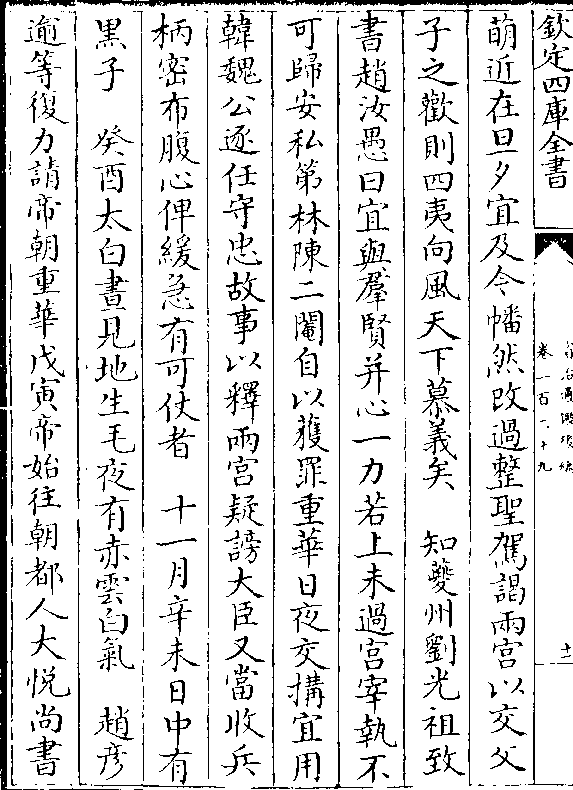 欽定四庫全書
卷一百一十九
十一
萌近在旦夕宜及今幡然改過整聖駕謁兩宮以交父
子之歡則四夷向風天下慕義矣　知夔州劉光祖致
書趙汝愚曰宜與羣賢并心一力若上未過宮宰執不
可歸安私第林陳二閹自以獲罪重華日夜交搆宜用
韓魏公逐任守忠故事以釋兩宮疑謗大臣又當收兵
柄密布腹心俾緩急有可仗者　十一月辛未日中有
黒子　癸酉太白晝見地生毛夜有赤雲白氣　趙彦
逾等復力請帝朝重華戊寅帝始往朝都人大悦尚書